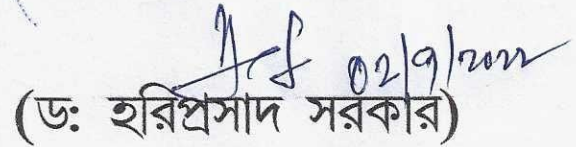 02/9/2022
(ড: হরিপ্রসাদ সরকার)